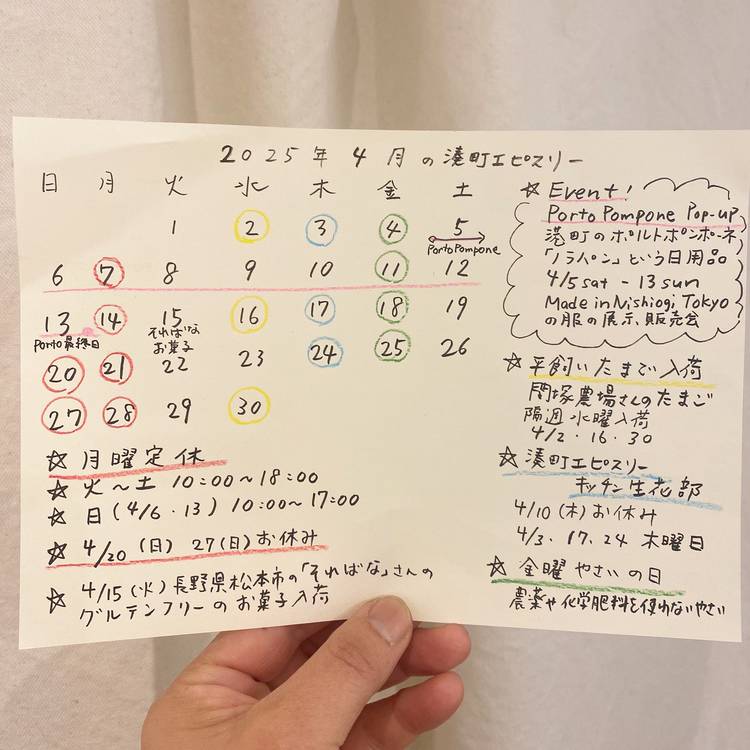 2025年4月の湊町エピスリー
日 月 火 水 木 金 土
1 2 3 4 5
Porto Pompone
6 7 8 9 10 11 12
13 14 15 16 17 18 19
Porto最終日
そればな
お菓子
20 21 22 23 24 25 26
27 28 29 30
☆ 月曜定休
☆ 火〜土 10:00〜18:00
☆ 日(4/6・13) 10:00〜17:00
☆ 4/20(日) 27(日)お休み
☆ 4/15(火)長野県松本市の「そればな」さんの
グルテンフリーのお菓子入荷
☆ Event!
Porto Pompone Pop-up
港町のポルトポンポーネ
「ノラパン」という日用品
4/5 sat - 13 sun
Made in Nishiogi Tokyo
の服の展示、販売会
☆ 平飼いたまご入荷
関塚農場さんのたまご
隔週水曜入荷
4/2・16・30
☆ 湊町エピスリー
キッチン生花部
4/10(木)お休み
4/3・17、24 木曜日
☆ 金曜やさいの日
農薬や化学肥料を使わないやさい